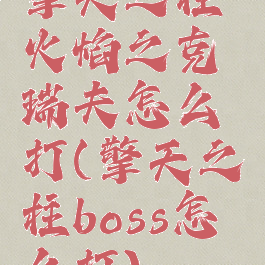 擎天之柱
火焰之克
瑞夫怎么
打(擎天之
柱boss怎
么打)